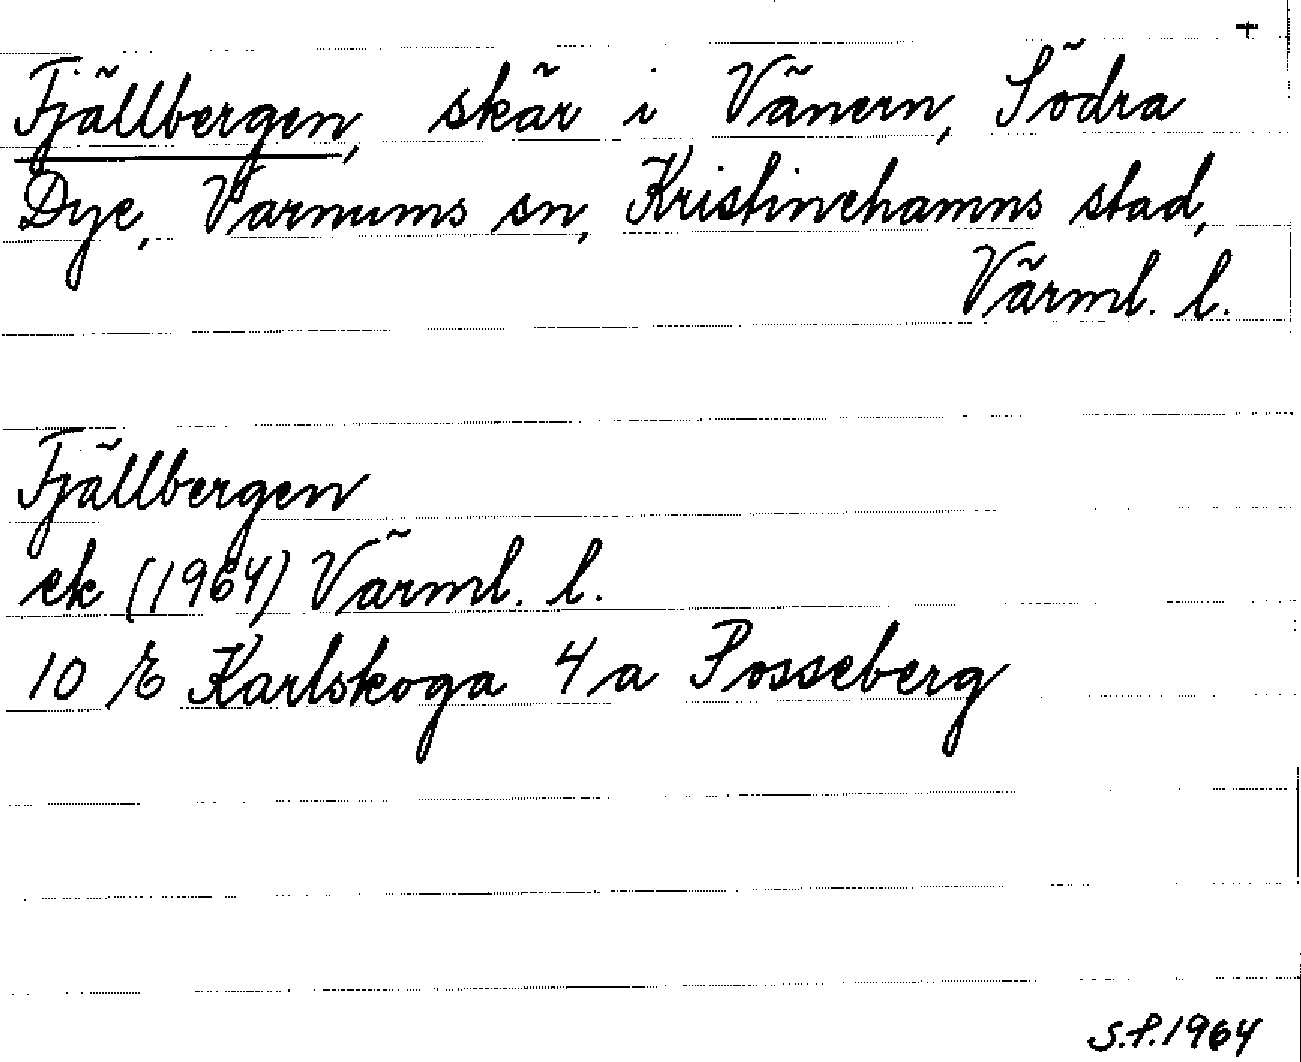 +
Fjällbergen, skär i Vänern, Södra
Dye, Varnums sn, Kristinehamns stad,
Värml. l.
Fjällbergen
ek (1964) Värml. l.
10 E Karlskoga 4 a Posseberg
S.P. 1964